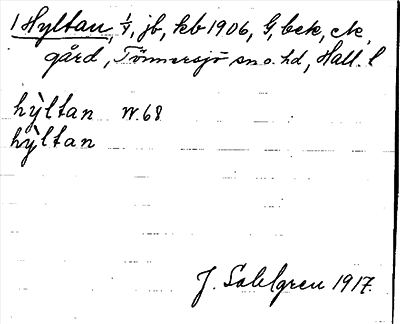 1 Hyltan, 1/1, jb, kb 1906, G, bek, ek,
gård, Tönnersjö sn o. hd, Hall. l
hỳltan W. 68
hỳltan
J. Sahlgren 1917.